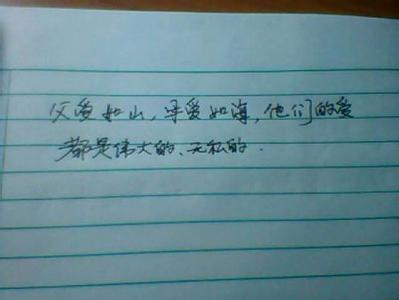 父爱如山,母爱如海,他们的爱
都是伟大的、无私的.